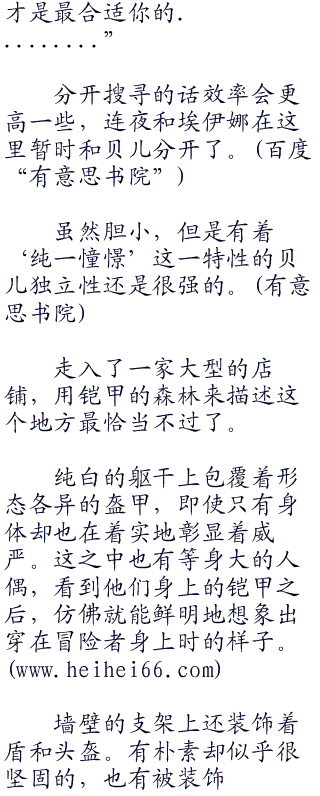 才是最合适你的.
........”
分开搜寻的话效率会更
高一些，连夜和埃伊娜在这
里暂时和贝儿分开了。(百度
“有意思书院”)
虽然胆小，但是有着
‘纯一憧憬’这一特性的贝
儿独立性还是很强的。(有意
思书院)
走入了一家大型的店
铺，用铠甲的森林来描述这
个地方最恰当不过了。
纯白的躯干上包覆着形
态各异的盔甲，即使只有身
体却也在着实地彰显着威
严。这之中也有等身大的人
偶，看到他们身上的铠甲之
后，仿佛就能鲜明地想象出
穿在冒险者身上时的样子。
(www.heihei66.com)
墙壁的支架上还装饰着
盾和头盔。有朴素却似乎很
坚固的，也有被装饰